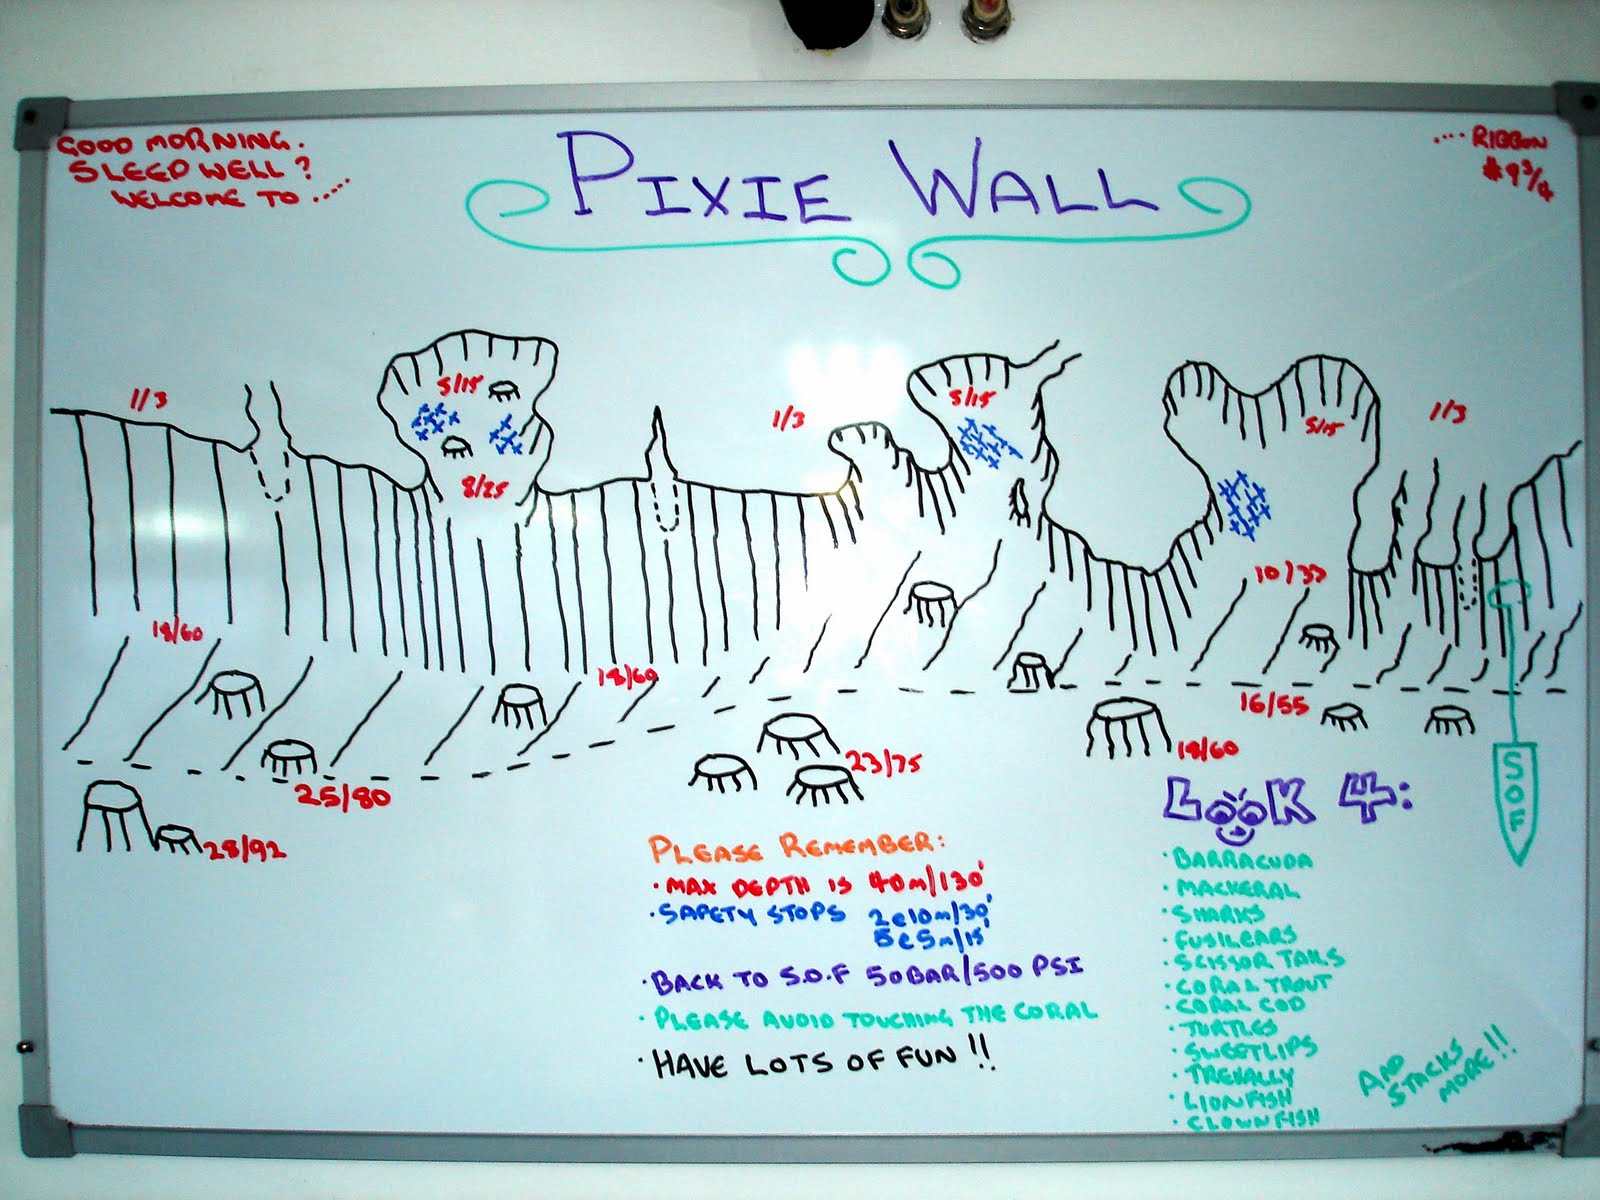 GOOD MORNING.
SLEEP WELL?
WELCOME TO .....
PIXIE WALL
.... RIBBON
#9 3/4
1/3
5/15
8/25
1/3
5/15
5/15
1/3
10/33
18/60
18/60
16/55
18/60
23/75
25/80
28/92
SOF
PLEASE REMEMBER:
· MAX DEPTH IS 40m/130'
· SAFETY STOPS 2@10m/30'
5@5m/15'
· BACK TO S.O.F 50BAR/500 PSI
· PLEASE AVOID TOUCHING THE CORAL
· HAVE LOTS OF FUN!!
LOOK 4:
· BARRACUDA
· MACKERAL
· SHARKS
· FUSILEARS
· SCISSOR TAILS
· CORAL TROUT
· CORAL COD
· TURTLES
· SWEETLIPS
· TREVALLY
· LIONFISH
· CLOWNFISH
AND
STACKS
MORE!!